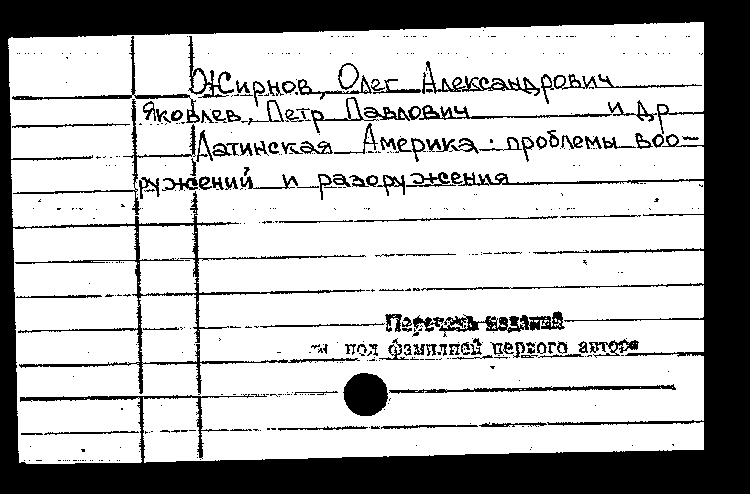 Жирнов, Олег Александрович
Яковлев, Петр Павлович и др
Латинская Америка: проблемы воо-
ружений и разоружения
Перечень изданий
под фамилией первого автора